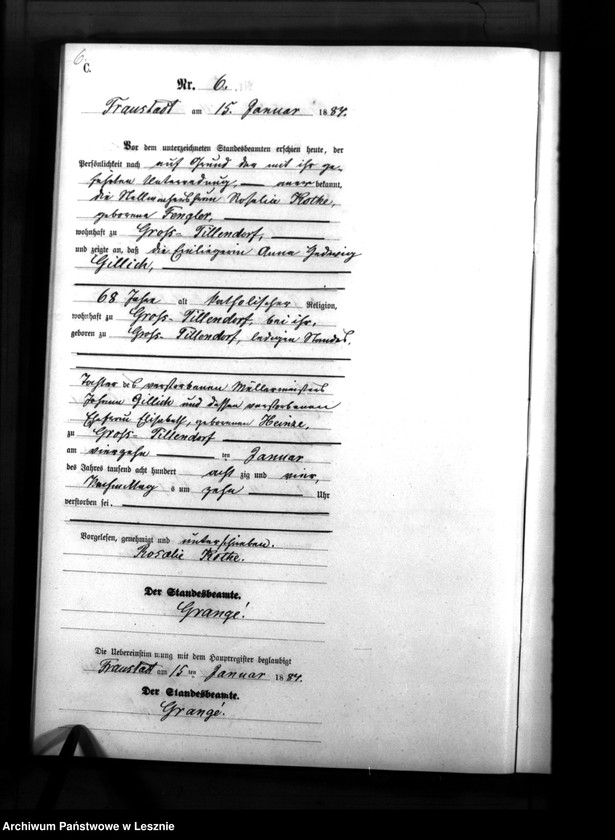 6
C.
Nr. 6.
Fraustadt am 15. Januar 1884.
Vor dem unterzeichneten Standesbeamten erschien heute, der
Persönlichkeit nach auf Grund der mit ihr ge-
führten Unterredung, anerkannt,
die Stellmachersfrau Rosalie Kothe,
geborene Fengler,
wohnhaft zu Groß-Tillendorf,
und zeigte an, daß die Einliegerin Anna Hedwig
Gillich,
68 Jahre alt katholischer Religion,
wohnhaft zu Groß-Tillendorf, bei ihr,
geboren zu Groß-Tillendorf, ledigen Standes,
Tochter des verstorbenen Müllermeisters
Johann Gillich und dessen verstorbenen
Ehefrau Elisabeth, geborenen Heinze,
zu Groß-Tillendorf
am vierzehn ten Januar
des Jahres tausend acht hundert achtzig und vier,
Nachmittags um zehn Uhr
verstorben sei.
Vorgelesen, genehmigt und unterschrieben.
Rosalie Kothe.
Der Standesbeamte.
Grangé.
Die Uebereinstimmung mit dem Hauptregister beglaubigt
Fraustadt am 15 ten Januar 1884.
Der Standesbeamte.
Grangé.
Archiwum Państwowe w Lesznie